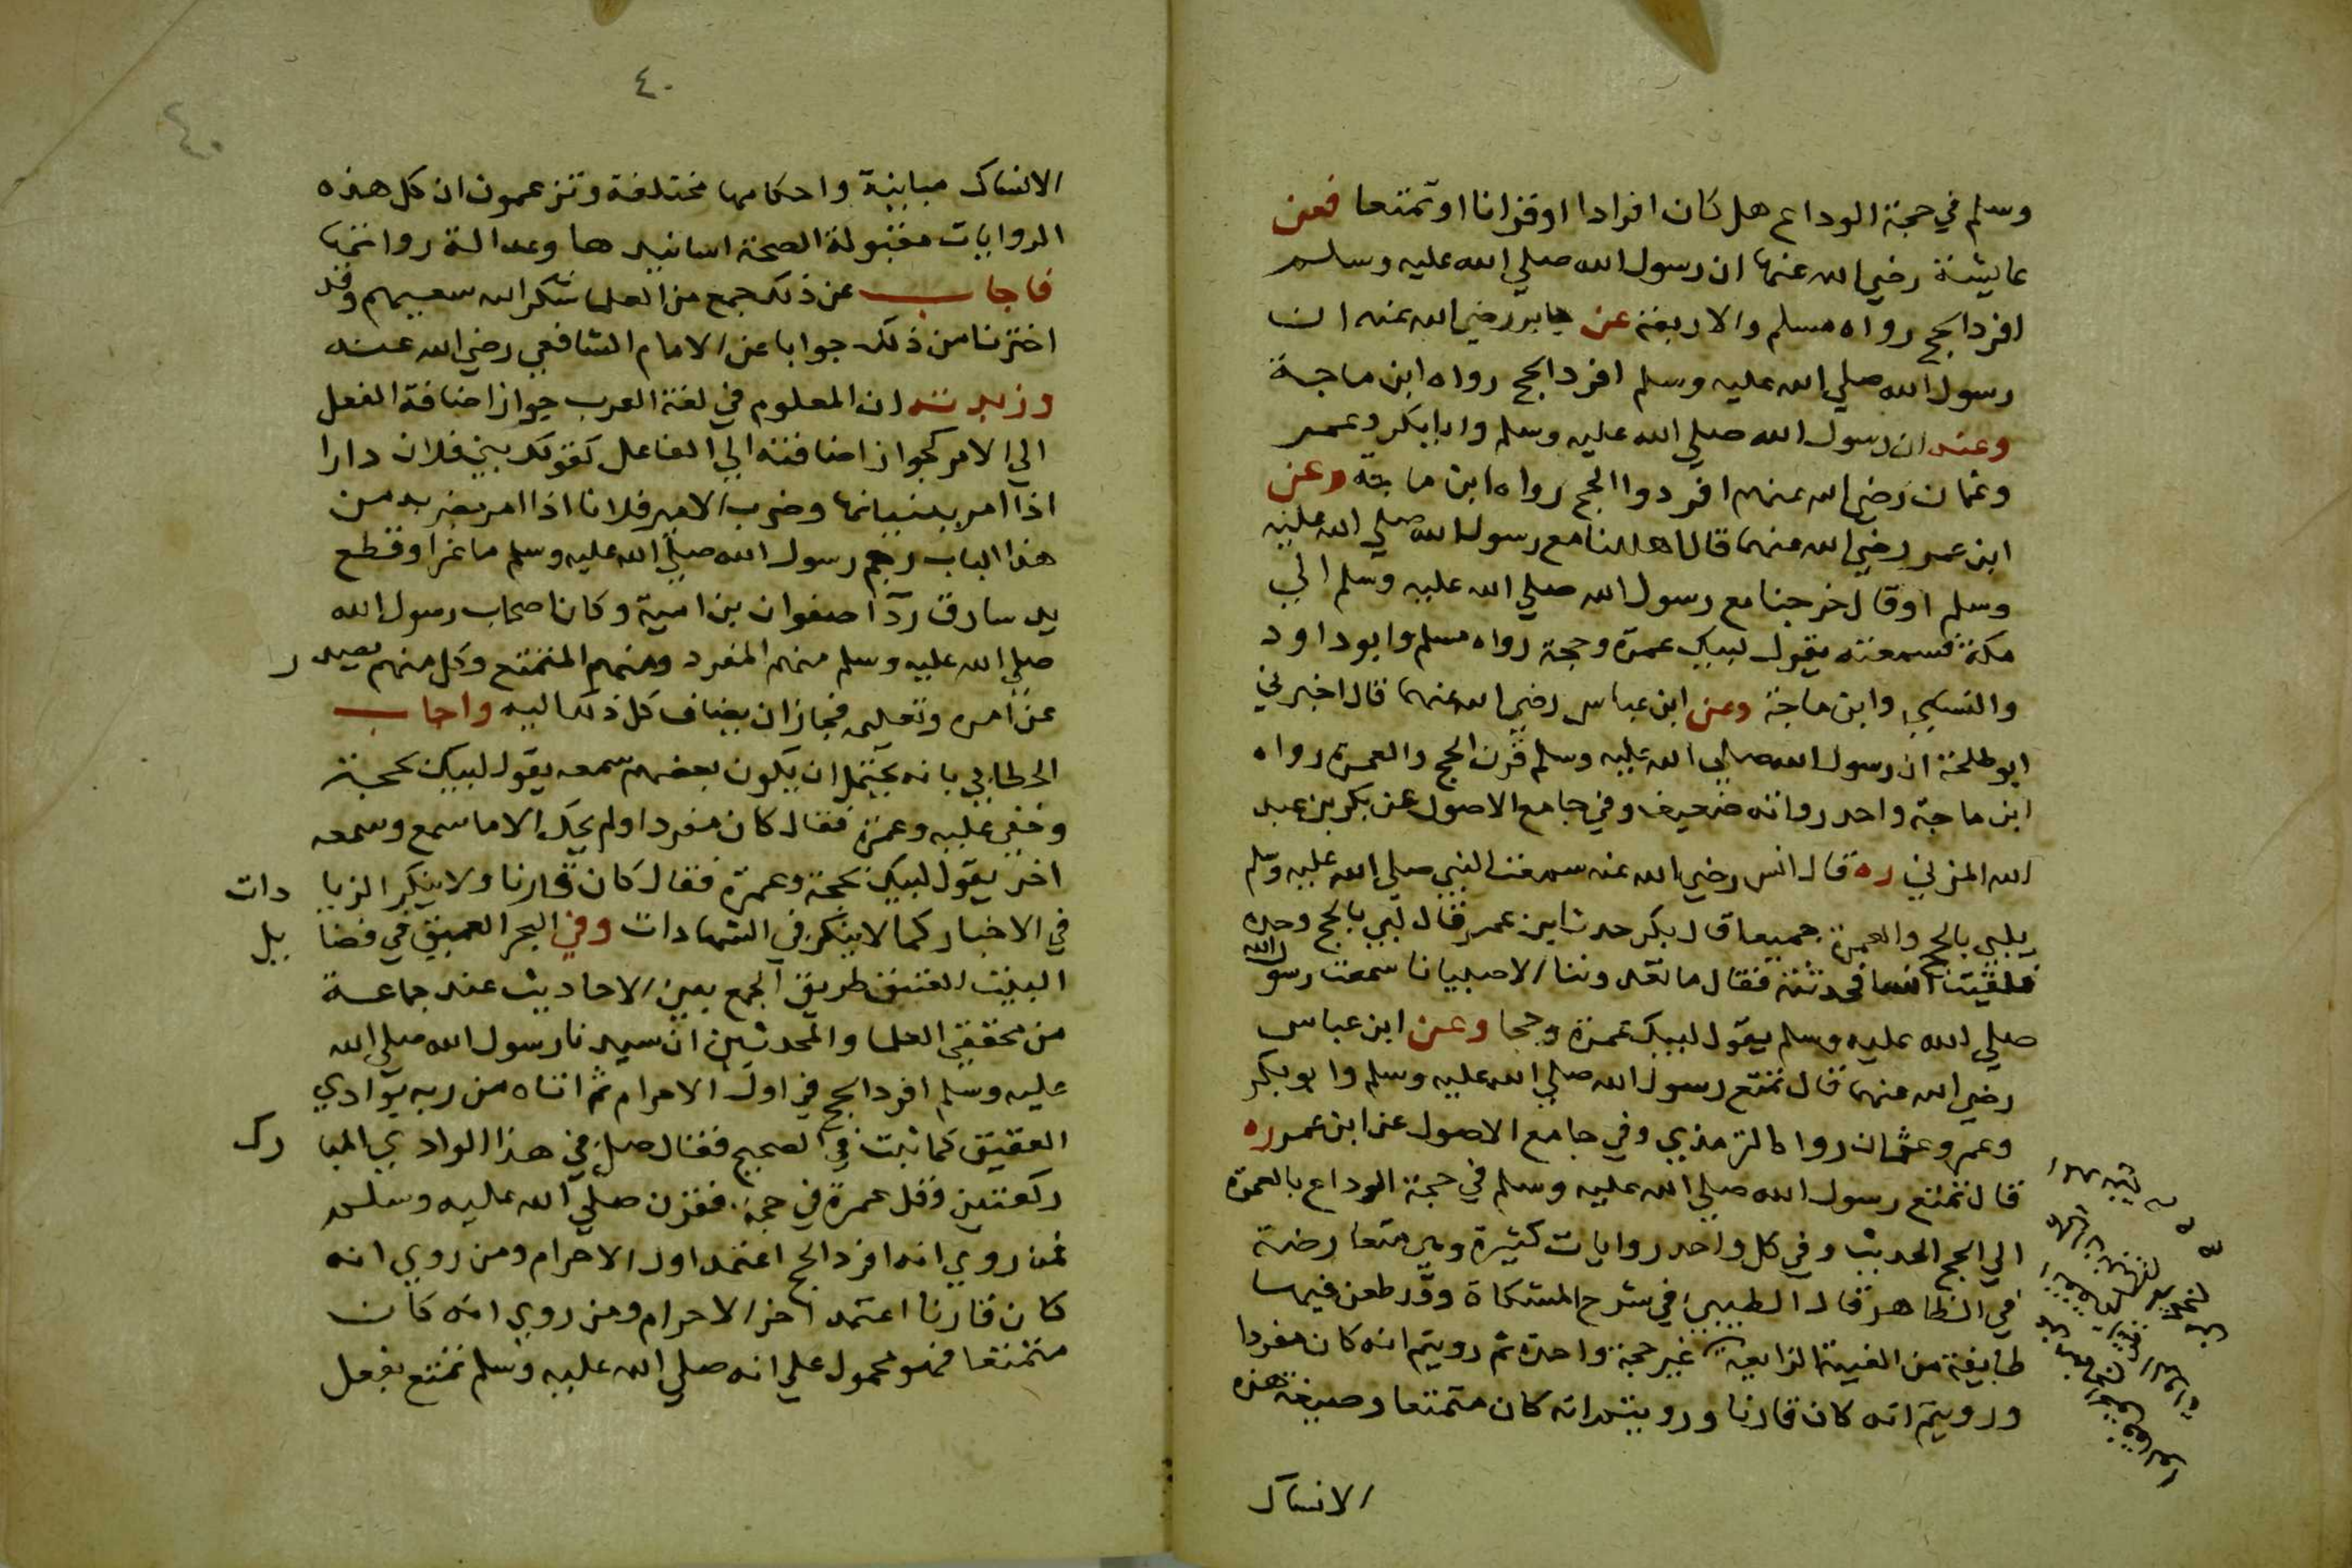 وسلم في حجة الوداع هل كان افرادا او قرانا او تمتعا فعن
عايشة رضي الله عنها ان رسول الله صلي الله عليه وسلم
افرد الحج رواه مسلم والاربعة عن جابر رضي الله عنه ان
رسول الله صلي الله عليه وسلم افرد الحج رواه ابن ماجة
وعنه ان رسول الله صلي الله عليه وسلم وابا بكر وعمر
وعثمان رضي الله عنهم افردوا الحج رواه ابن ماجة وعن
ابن عمر رضي الله عنهما قال اهللنا مع رسول الله صلي الله عليه
وسلم او قال خرجنا مع رسول الله صلي الله عليه وسلم الي
مكة فسمعته يقول لبيك عمرة وحجة رواه مسلم وابو داود
والنسيي وابن ماجة وعن ابن عباس رضي الله عنهما قال اخبرني
ابو طلحة ان رسول الله صلي الله عليه وسلم قرن الحج والعمرة رواه
ابن ماجة واحد رواته ضعيف وفي جامع الاصول عن بكر بن عبد
الله المزني ره قال انس رضي الله عنه سمعت النبي صلي الله عليه وسلم
يلبي بالحج والعمرة جميعا قال بكر حدث ابن عمر فقال لبي بالحج وحده
فلقيت انسا فحدثته فقال ما تعدوننا الا صبيانا سمعت رسول الله
صلي الله عليه وسلم يقول لبيك عمرة وحجا وعن ابن عباس
رضي الله عنهما قال تمتع رسول الله صلي الله عليه وسلم وابو بكر
وعمر وعثمان رواه الترمذي وفي جامع الاصول عن ابن عمر ره
قال تمتع رسول الله صلي الله عليه وسلم في حجة الوداع بالعمرة
الي الحج الحديث وفي كل واحد روايات كثيرة وهي متعارضة
في الظاهر قال الطيبي في شرح المشكاة وقد طعن فيها
طايفة من الفية الزايغة غير حجة واحدة ثم رويتم انه كان مفردا
ورويتم انه كان قارنا ورويتم انه كان متمتعا وصيغة هذه
الانساك
٤٠
٤٠
الانساك مباينة واحكامها مختلفة وتزعمون ان كل هذه
الروايات مقبولة لصحة اسانيدها وعدالة رواتها
فاجاب عن ذلك جمع من العلما شكر الله سعيهم وقد
اخترنا من ذلك جوابا عن الامام الشافعي رضي الله عنه
وزبدته ان المعلوم في لغة العرب جواز اضافة الفعل
الي الامر كجواز اضافته الي الفاعل كقولك بني فلان دارا
اذا امر ببنيانها وضرب الامير فلانا اذا امر بضربه من
هذا الباب رجم رسول الله صلي الله عليه وسلم ماعزا وقطع
يد سارق ردآ صفوان بن امية وكان اصحاب رسول الله
صلي الله عليه وسلم منهم المفرد ومنهم المتمتع وكل منهم يصدر
عن امره وتعليمه فجاز ان يضاف كل ذلك اليه واجاب
الخطابي بانه يحتمل ان يكون بعضهم سمعه يقول لبيك بحجة
وخفي عليه وعمرة فقال كان مفردا ولم يحك الا ما سمع وسمعه
اخر يقول لبيك بحجة وعمرة فقال كان قارنا ولا ينكر الزيادات
في الاخبار كما لا ينكر في الشهادات وفي البحر العميق في فضايل
البيت العتيق طريق الجمع بين الاحاديث عند جماعة
من محققي العلما والمحدثين ان سيدنا رسول الله صلي الله
عليه وسلم افرد الحج في اول الاحرام ثم اتاه من ربه بوادي
العقيق كما ثبت في الصحيح فقال صل في هذا الوادي المبارك
ركعتين وقل عمرة في حجة فقرن صلي الله عليه وسلم
فمن روي انه افرد الحج اعتمد اول الاحرام ومن روي انه
كان قارنا اعتمد اخر الاحرام ومن روي انه كان
متمتعا فهو محمول علي انه صلي الله عليه وسلم تمتع بفعل